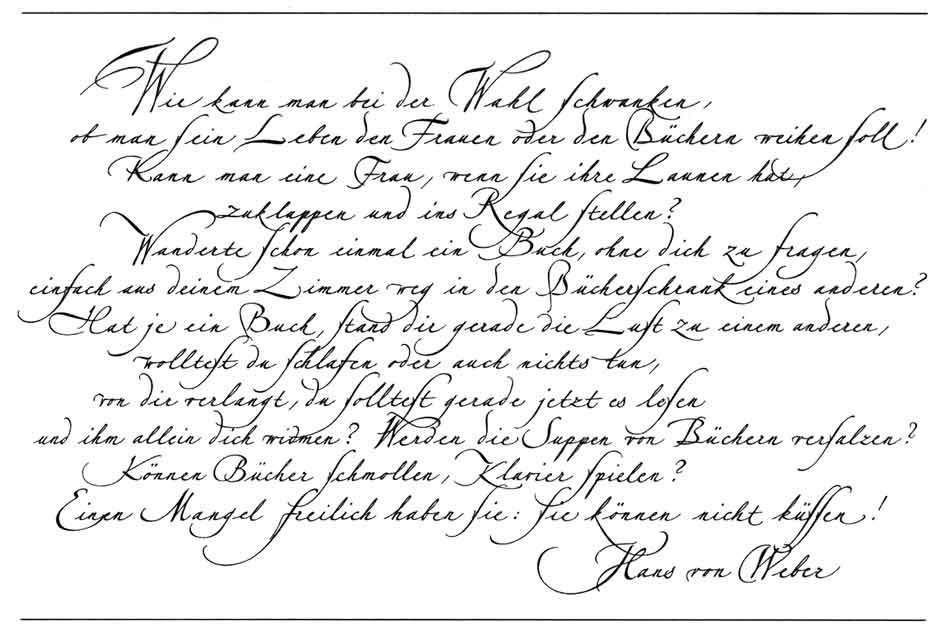 Wie kann man bei der Wahl schwanken,
ob man sein Leben den Frauen oder den Büchern weihen soll!
Kann man eine Frau, wenn sie ihre Launen hat,
zuklappen und ins Regal stellen?
Wanderte schon einmal ein Buch, ohne dich zu fragen,
einfach aus deinem Zimmer weg in den Bücherschrank eines anderen?
Hat je ein Buch, stand dir gerade die Lust zu einem anderen,
wolltest du schlafen oder auch nichts tun,
von dir verlangt, du solltest gerade jetzt es lesen
und ihm allein dich widmen? Werden die Suppen von Büchern versalzen?
Können Bücher schmollen, Klavier spielen?
Einen Mangel freilich haben sie: sie können nicht küssen!
Hans von Weber